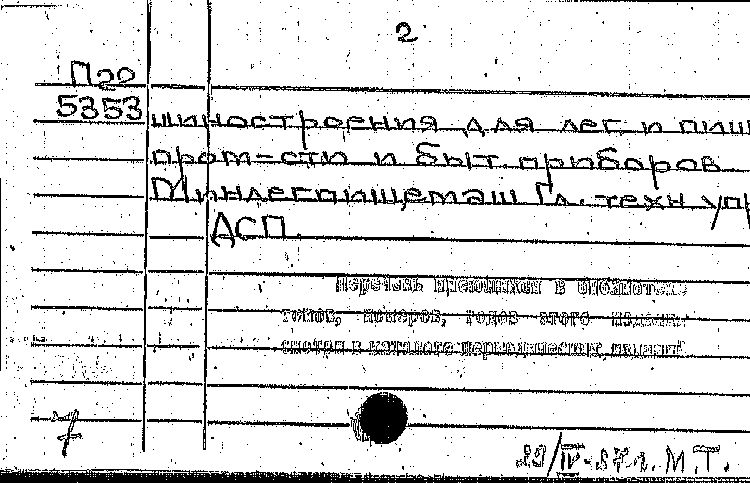 2
П20
5353
шиностроения для лег. и пищ
пром-сти и быт. приборов
Минлегпищемаш Гл. техн упр
ДСП.
Перечень имеющихся в библиотеке
томов, номеров, годов этого издания
смотри в каталоге периодических изданий
7
29/IV-87г. М.Т.